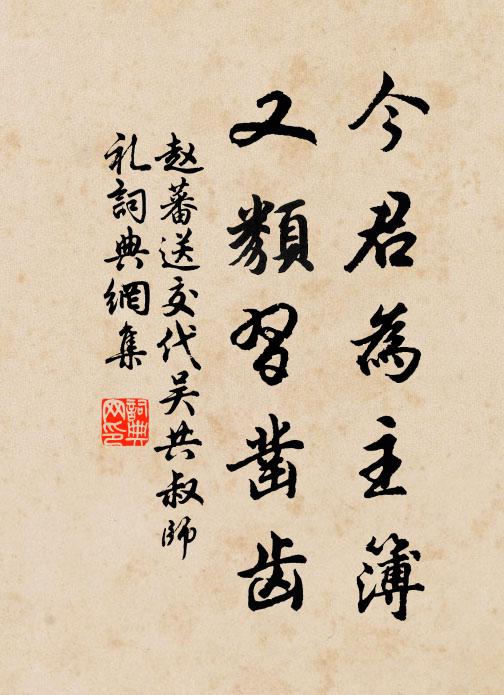 今君為主簿
又類習鑿齿
赵蕃送交代吴共叔師
礼詞典網集
詞典网印